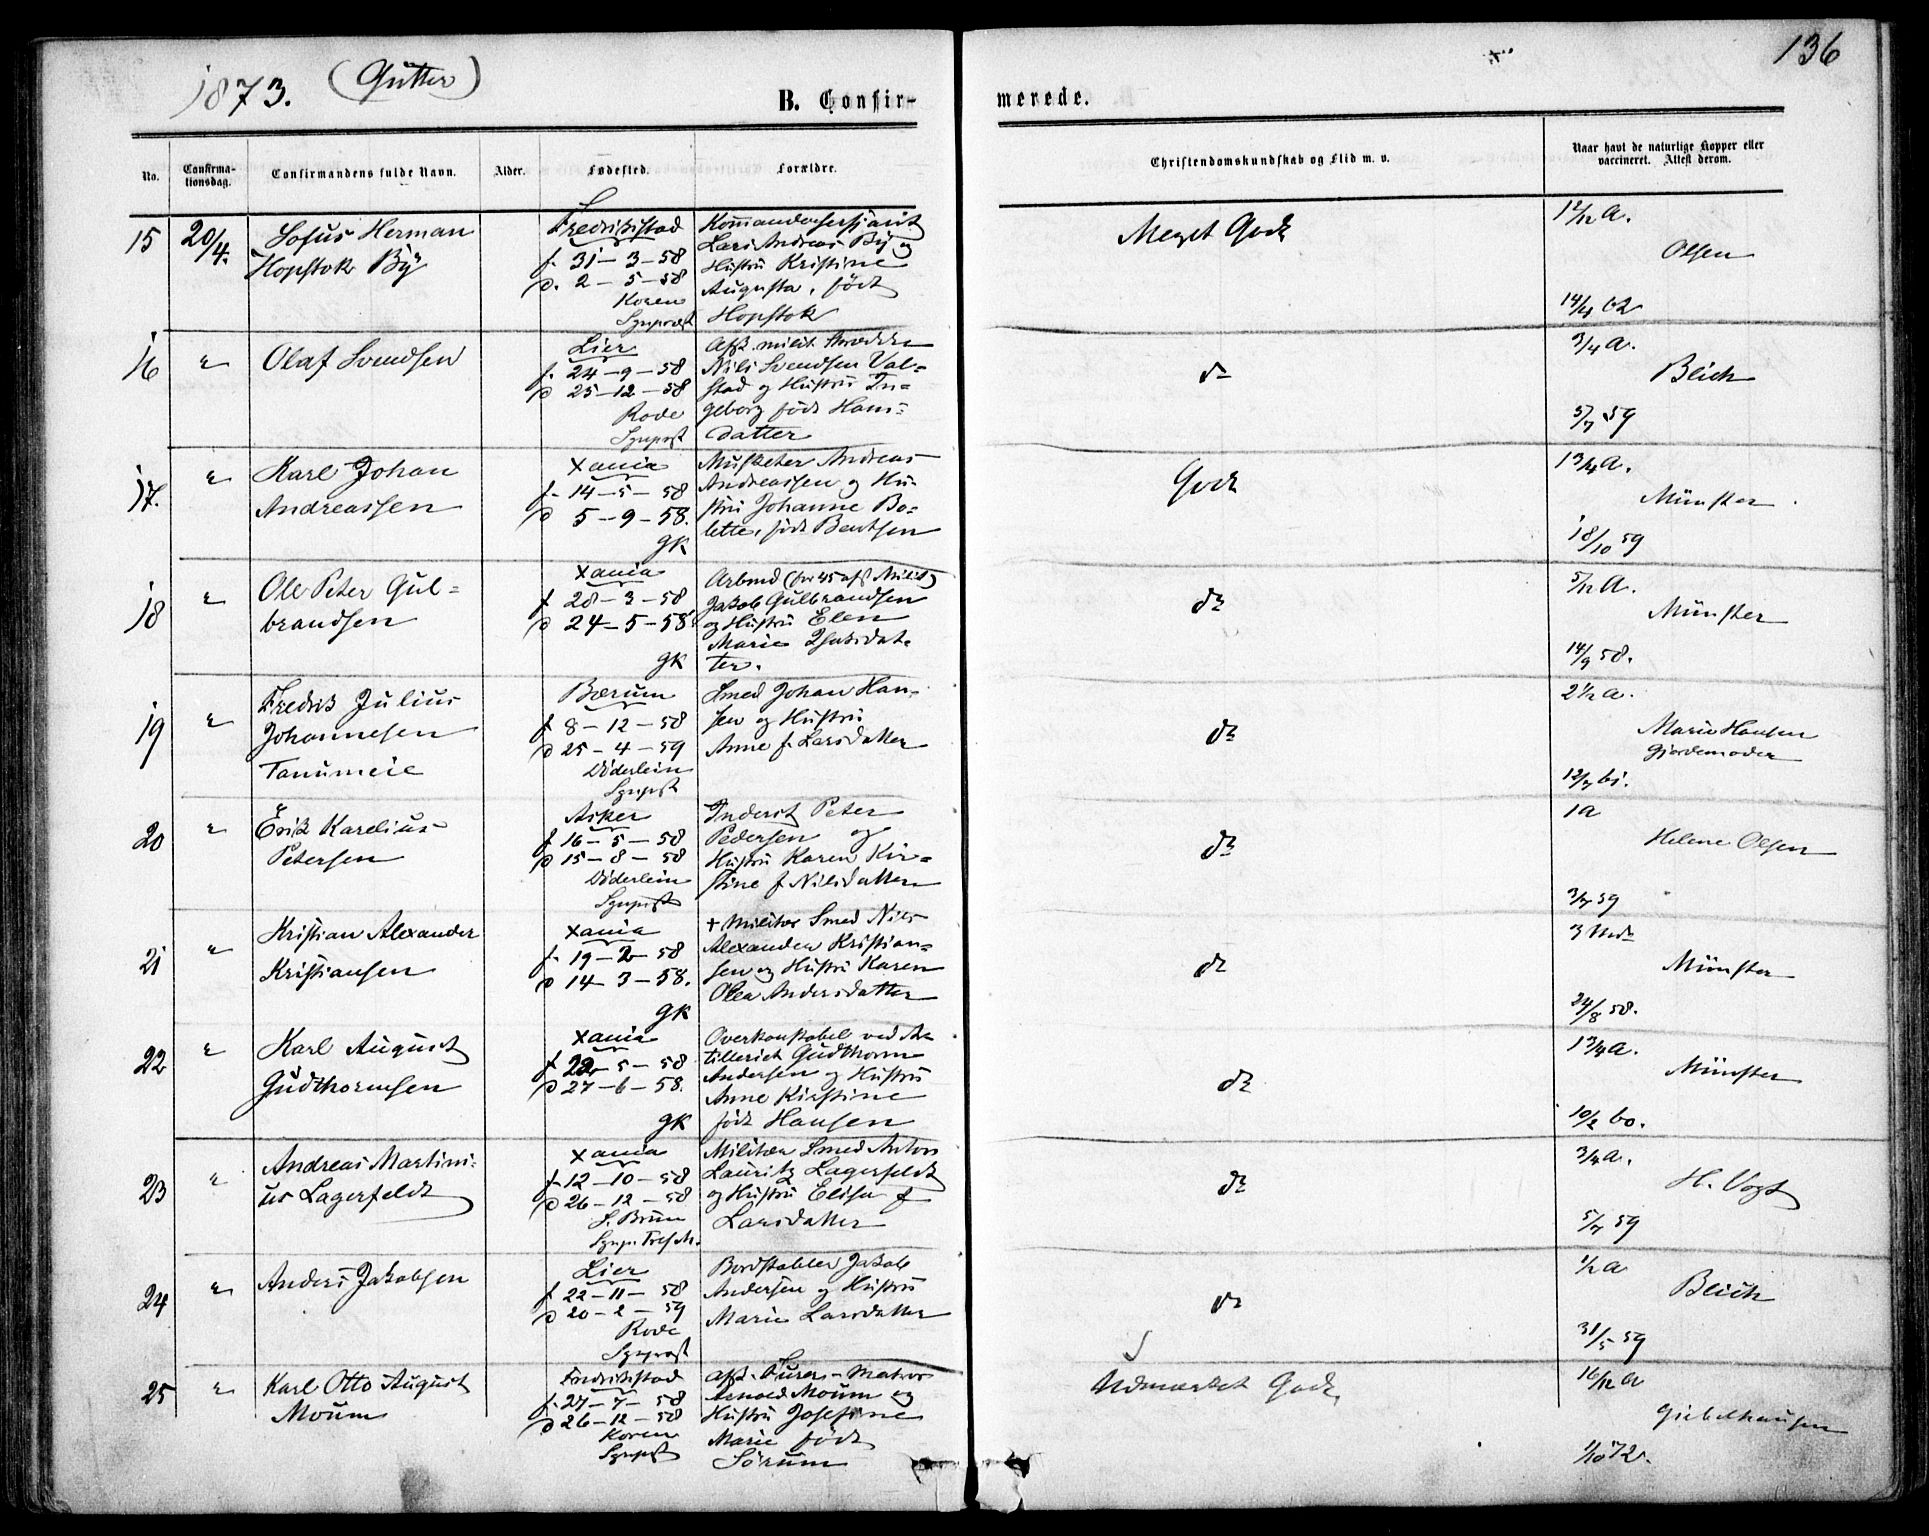 136
1873. (Gutter)
B. Confir-
merede.
No.
Confirma-
tionsdag.
Confirmandens fulde Navn.
Alder.
Fødested.
Forældre.
Christendomskundskab og Flid m. v.
Naar havt de naturlige Kopper eller
vaccineret. Attest derom.
15
20/4.
Sofus Herman
Hopstok Bÿ
Fredriksstad
f. 31-3-58
d. 2-5-58
Koren
Sgnpræst
Kommandersersjant
Lars Andreas Bÿ og
Hustru Kristine
Augusta, født
Hopstok
Meget Godt
12/12 A.
Olsen
14/4 62
16
"
Olaf Svendsen
Lier
f. 24-9-58
d 25-12-58
Rode
Sgnprst
Afsk. milit.
Nils Svendsen Val-
stad og Hustru In-
geborg født Hans-
datter
do
3/4 A.
Blich
5/7 59
17.
"
Karl Johan
Andreassen
Xania
f. 14-5-58
d 5-9-58.
GK
Musketer Andreas
Andreassen og Hu-
stru Johanne Bo-
lette, født Bentsen
Godt
13/4 A.
Münster
18/10 59
18
"
Ole Peter Gul-
brandsen
Xania
f 28-3-58
d 24-5-58
GK
Arbmd (for 45 afs Milit)
Jakob Gulbrandsen
og Hustru Elen
Marie Isaksdat-
ter.
do
5/12 A.
Münster
14/9 58.
19
"
Fredrik Julius
Johannesen
Tanumeie
Bærum
f 8-12-58
d 25-4-59
Döderlein
Sgnpst
Smed Johan Han-
sen og Hustru
Anne f. Larsdatter
do
2 1/2 a.
Marie Hansen
Gjordemoder
12/7 61.
20
"
Erik Karelius
Petersen
Asker
f 16-5-58
d 15-8-58
Döderlein
Sgnprst
Inderst Peter
Pedersen og
Hustru Karen Kir-
stine f Nilsdatter
do
1a
Helene Olsen
3/7 59
21
"
Kristian Alexander
Kristiansen
Xania
f. 19-2-58
d 14-3-58.
GK
+ Militær Smed Nils
Alexander Kristian-
sen og Hustru Karen
Olea Andersdatter
do
3 Md
Münster
24/8 58.
22
"
Karl August
Gudthormsen
Xania
f 22-5-58
d 27-6-58.
GK
Overkonstabel ved Ar-
tilleriet Gudthorm
Andersen og Hustru
Anne Kirstine
født Hansen
do
1 3/4 a.
Münster
10/2 60.
23
"
Andreas Martini-
us Lagerfeldt
Xania
f 12-10-58
d 26-12-58
S. Bruun
Militær Smed Anton
Lauritz Lagerfeldt
og Hustru Elise f
Larsdatter
do
3/4 A.
H. Vogt
5/7 59
24
"
Anders Jakobsen
Lier
f 22-11-58
d 20-2-59
Rode
Sgnprst
Bordstabler Jakob
Andersen og Hustru
Marie Larsdatter
do
1/2 a
Blich
31/5 59
25
"
Karl Otto August
Moum
Fredriksstad
f. 27-7-58
d 26-12-58
Koren
Sgnpst
afsk.
Arnold Moum og
Hustru Josefine
Marie født
Sörum
Udmærket Godt
Giebelhausen
1/10 72.